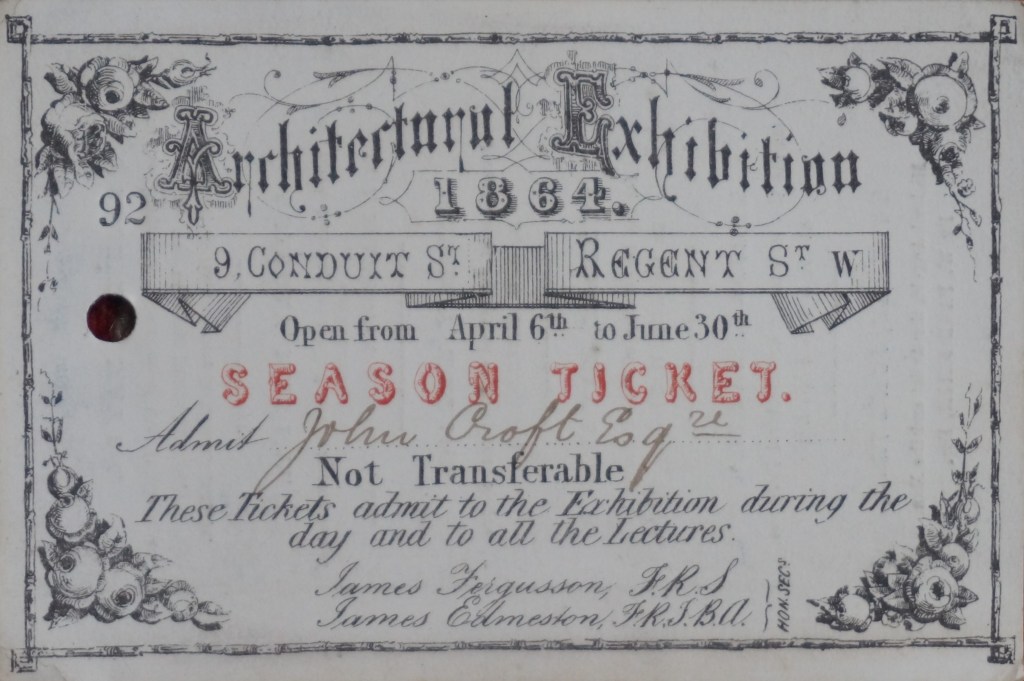 Architectural Exhibition
92
1864.
9, CONDUIT ST. REGENT ST W
Open from April 6th to June 30th
SEASON TICKET.
Admit John Croft Esqre
Not Transferable
These Tickets admit to the Exhibition during the
day and to all the Lectures.
James Fergusson, F.R.S
James Edmeston, F.R.I.B.A.
HON. SECS